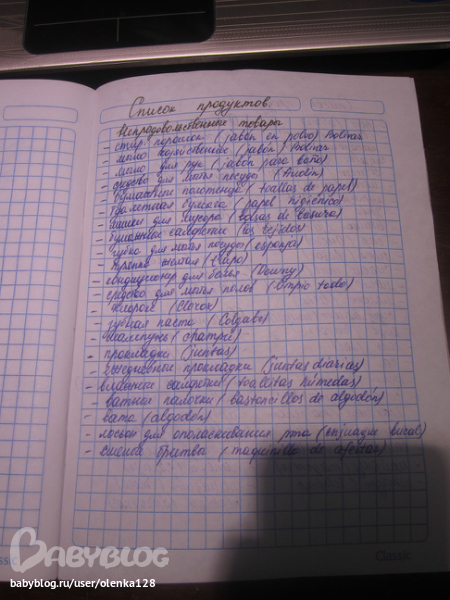 Список продуктов.
Непродовольственные товары
- стир. порошок (jabón en polvo) Bolívar
- мыло хозяйственное (jabón) Bolívar
- мыло для рук (jabón para baño)
- средство для мытья посуды
- бумажные полотенца (toallas de papel)
- туалетная бумага (papel higiénico)
- для мусора (bolsas de basura)
- бумажные салфетки (los tejidos)
- губка для мытья посуды (esponja)
- тряпка желтая
- кондиционер для белья (Downy)
- средство для мытья полов (limpio todo)
- (Clorox)
- зубная паста (Colgate)
- шампунь (champú)
- прокладки (juntas)
- ежедневные прокладки (juntas diarias)
- влажные салфетки (toallitas húmedas)
- ватные палочки (bastoncillos de algodón)
- вата (algodón)
- лосьон для ополаскивания рта (enjuague bucal)
- бритва (maquinilla de afeitar)
Classic
BABYBLOG
babyblog.ru/user/olenka128